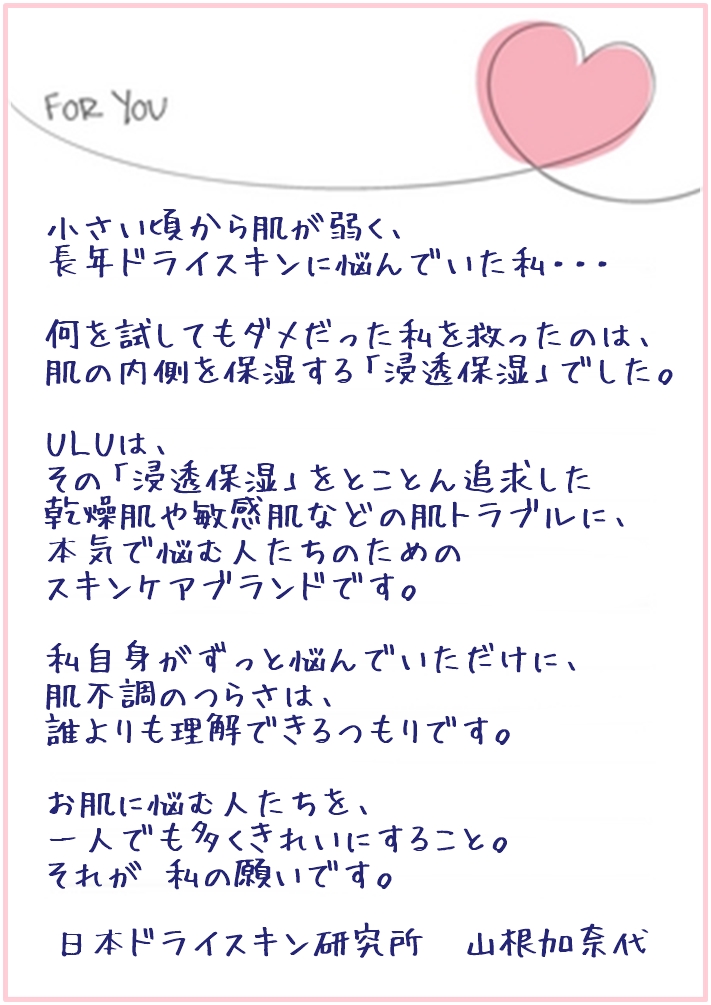 FOR YOU
小さい頃から肌が弱く、
長年ドライスキンに悩んでいた私・・・
何を試してもダメだった私を救ったのは、
肌の内側を保湿する「浸透保湿」でした。
ULUは、
その「浸透保湿」をとことん追求した
乾燥肌や敏感肌などの肌トラブルに、
本気で悩む人たちのための
スキンケアブランドです。
私自身がずっと悩んでいただけに、
肌不調のつらさは、
誰よりも理解できるつもりです。
お肌に悩む人たちを、
一人でも多くきれいにすること。
それが 私の願いです。
日本ドライスキン研究所　山根加奈代